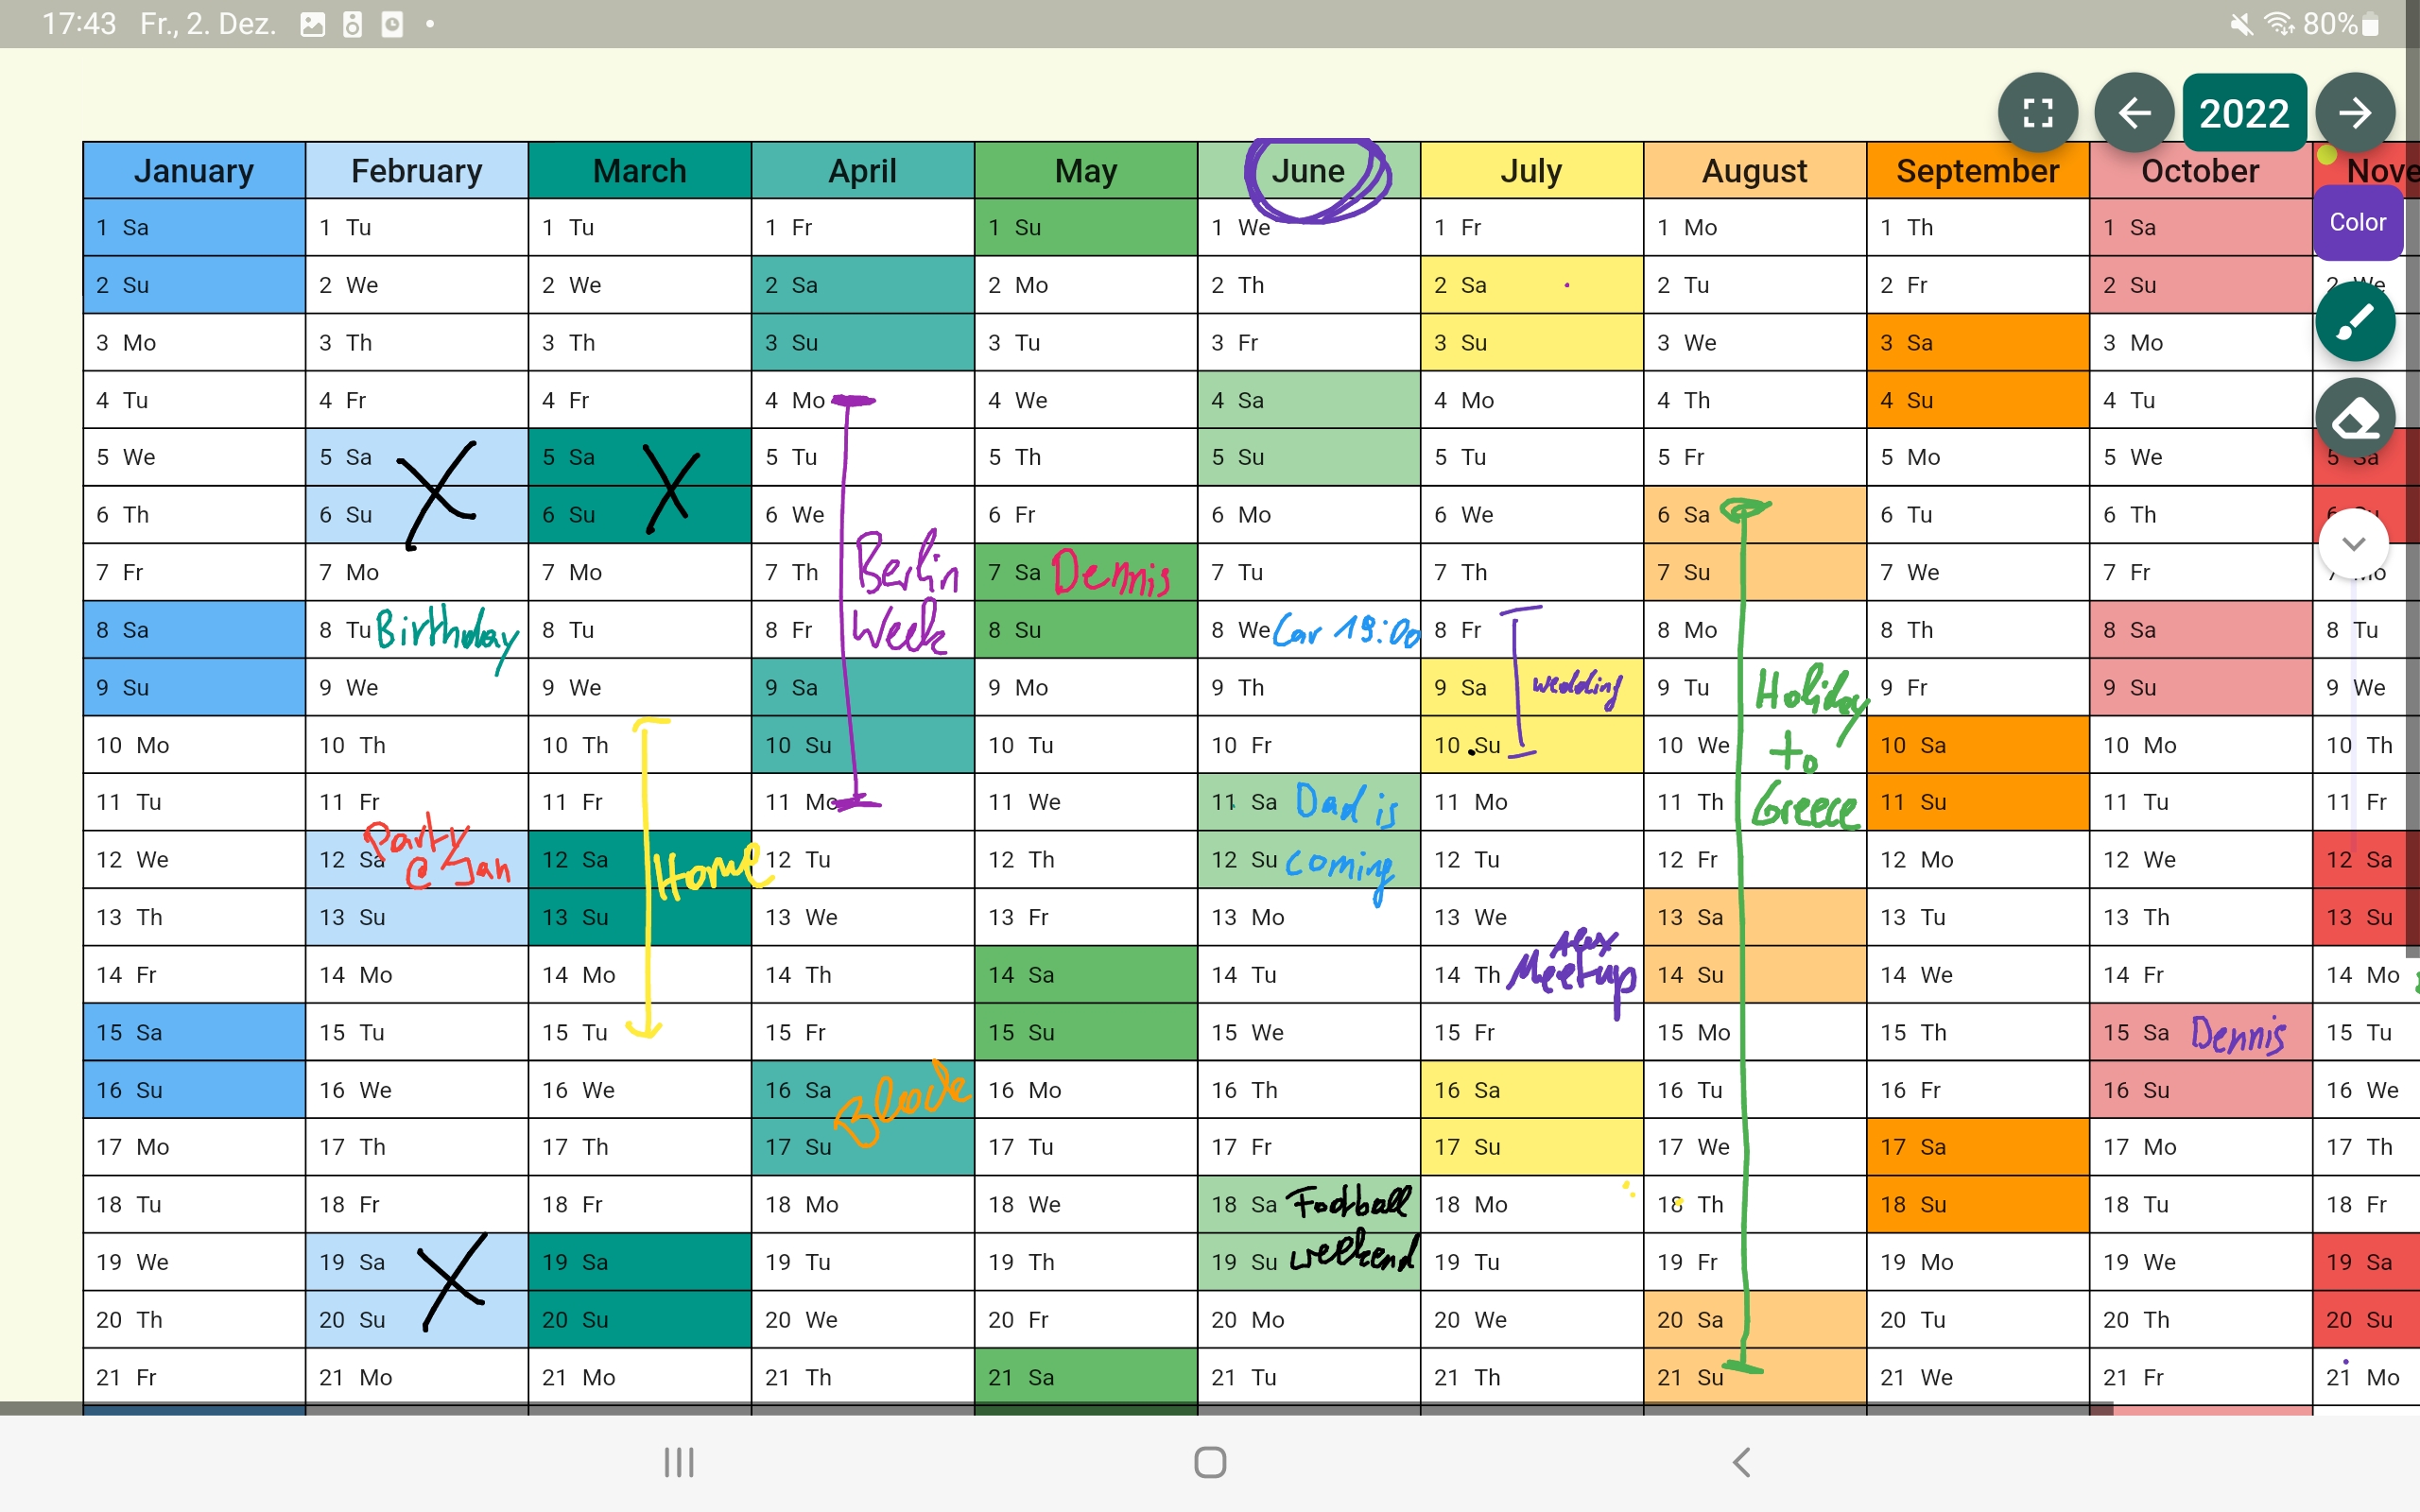 17:43 Fr., 2. Dez. 80%
2022
January February March April May June July August September October Nove
Color
1 Sa 1 Tu 1 Tu 1 Fr 1 Su 1 We 1 Fr 1 Mo 1 Th 1 Sa
2 Su 2 We 2 We 2 Sa 2 Mo 2 Th 2 Sa 2 Tu 2 Fr 2 Su 2 We
3 Mo 3 Th 3 Th 3 Su 3 Tu 3 Fr 3 Su 3 We 3 Sa 3 Mo
4 Tu 4 Fr 4 Fr 4 Mo 4 We 4 Sa 4 Mo 4 Th 4 Su 4 Tu
5 We 5 Sa 5 Sa 5 Tu 5 Th 5 Su 5 Tu 5 Fr 5 Mo 5 We 5 Sa
6 Th 6 Su 6 Su 6 We 6 Fr 6 Mo 6 We 6 Sa 6 Tu 6 Th 6 Su
7 Fr 7 Mo 7 Mo 7 Th Berlin 7 Sa Dennis 7 Tu 7 Th 7 Su 7 We 7 Fr 7 Mo
8 Sa 8 Tu Birthday 8 Tu 8 Fr Week 8 Su 8 We Car 19:00 8 Fr 8 Mo 8 Th 8 Sa 8 Tu
9 Su 9 We 9 We 9 Sa 9 Mo 9 Th 9 Sa wedding 9 Tu Holiday 9 Fr 9 Su 9 We
10 Mo 10 Th 10 Th 10 Su 10 Tu 10 Fr 10 Su 10 We to 10 Sa 10 Mo 10 Th
11 Tu 11 Fr 11 Fr 11 Mo 11 We 11 Sa Dad is 11 Mo 11 Th Greece 11 Su 11 Tu 11 Fr
12 We 12 Sa Party @ Jan 12 Sa Home 12 Tu 12 Th 12 Su coming 12 Tu 12 Fr 12 Mo 12 We 12 Sa
13 Th 13 Su 13 Su 13 We 13 Fr 13 Mo 13 We 13 Sa 13 Tu 13 Th 13 Su
14 Fr 14 Mo 14 Mo 14 Th 14 Sa 14 Tu 14 Th Alex Meetup 14 Su 14 We 14 Fr 14 Mo
15 Sa 15 Tu 15 Tu 15 Fr 15 Su 15 We 15 Fr 15 Mo 15 Th 15 Sa Dennis 15 Tu
16 Su 16 We 16 We 16 Sa 16 Mo 16 Th 16 Sa 16 Tu 16 Fr 16 Su 16 We
17 Mo 17 Th 17 Th 17 Su 17 Tu 17 Fr 17 Su 17 We 17 Sa 17 Mo 17 Th
18 Tu 18 Fr 18 Fr 18 Mo 18 We 18 Sa Football 18 Mo 18 Th 18 Su 18 Tu 18 Fr
19 We 19 Sa 19 Sa 19 Tu 19 Th 19 Su weekend 19 Tu 19 Fr 19 Mo 19 We 19 Sa
20 Th 20 Su 20 Su 20 We 20 Fr 20 Mo 20 We 20 Sa 20 Tu 20 Th 20 Su
21 Fr 21 Mo 21 Mo 21 Th 21 Sa 21 Tu 21 Th 21 Su 21 We 21 Fr 21 Mo